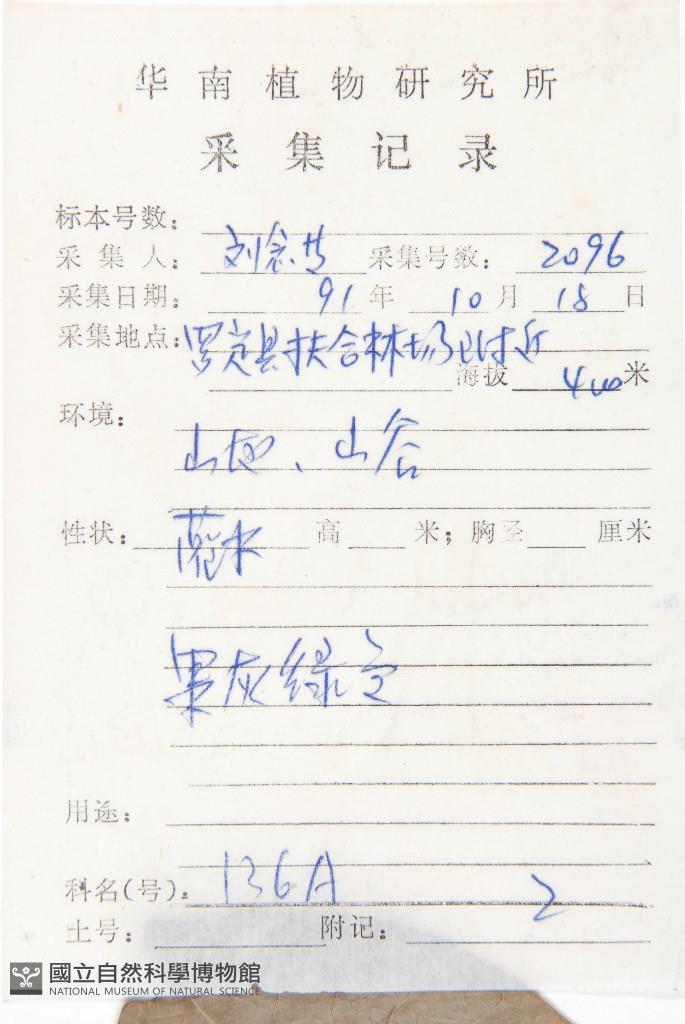 华南植物研究所
采集记录
标本号数:
采集人: 刘念 采集号数: 2096
采集日期: 91年10月18日
采集地点: 罗定县扶合林场附近
海拔 400米
环境:
山地、山谷
性状: 灌木 高 米; 胸径 厘米
果灰绿色
用途:
科名(号). 136A 2
土号: 附记:
國立自然科學博物館
NATIONAL MUSEUM OF NATURAL SCIENCE